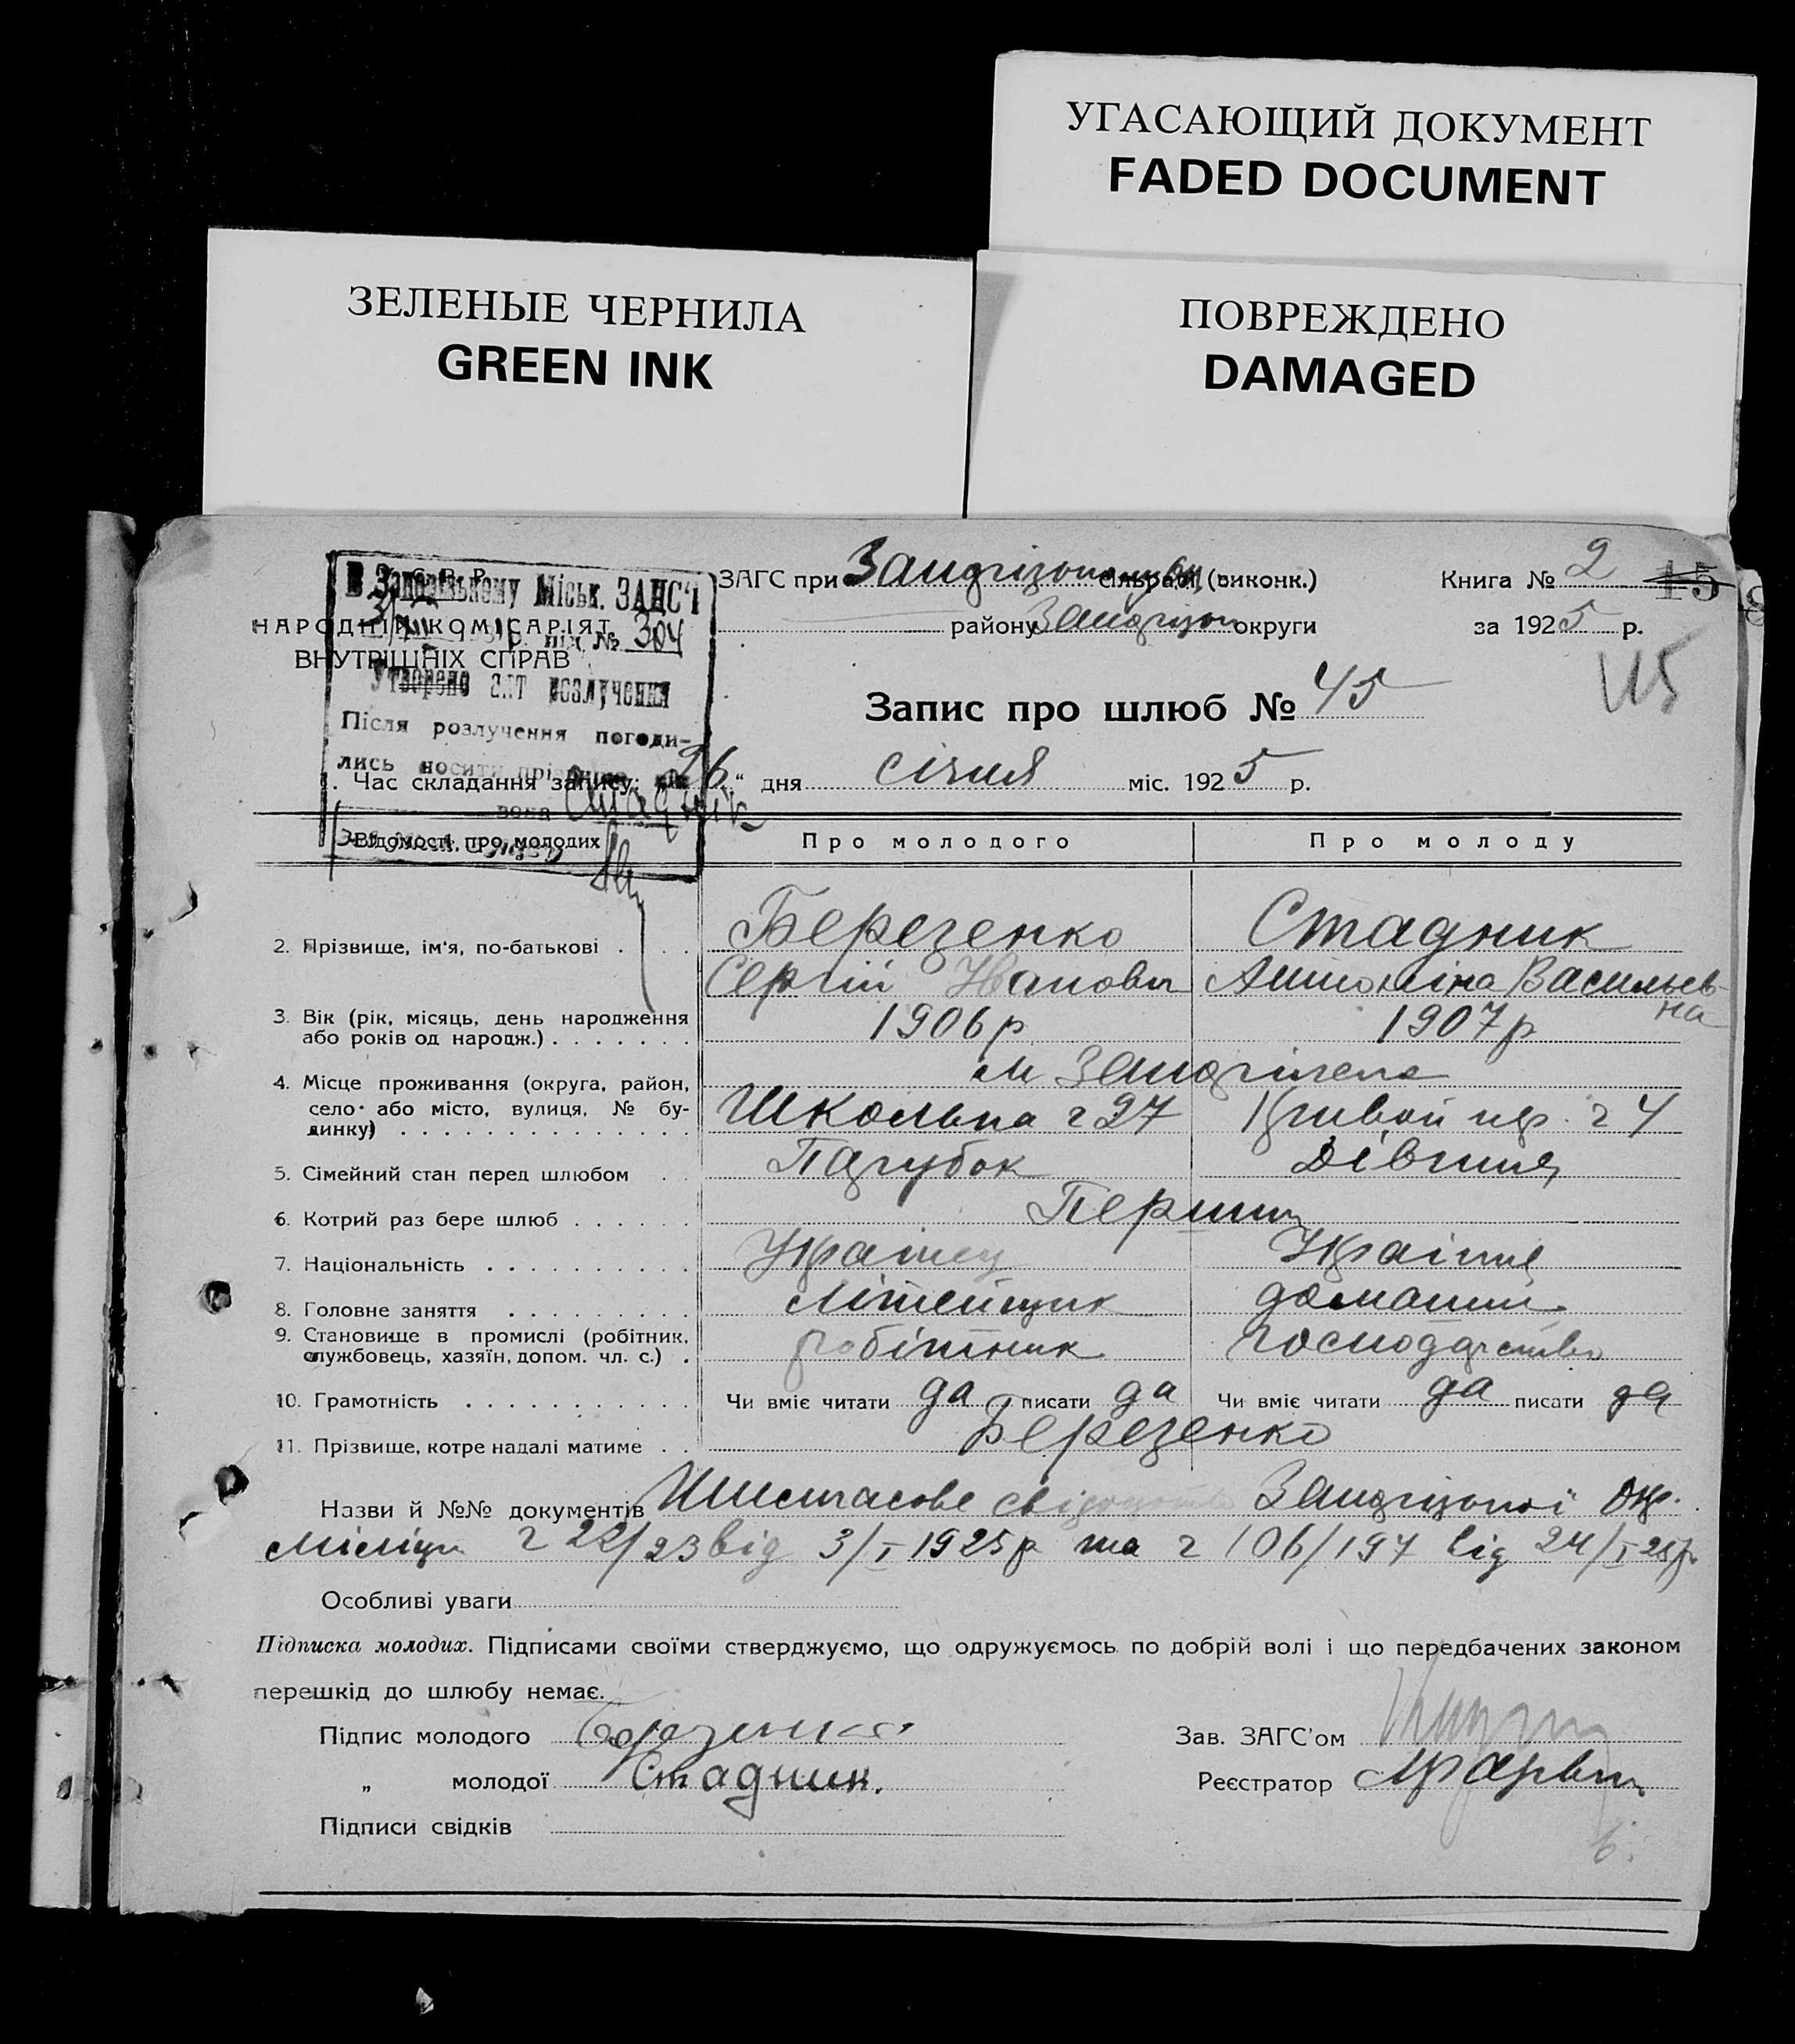 УГАСАЮЩИЙ ДОКУМЕНТ
FADED DOCUMENT
ЗЕЛЕНЫЕ ЧЕРНИЛА
GREEN INK
ПОВРЕЖДЕНО
DAMAGED
В Запорізькому Міськ. ЗАГС'і
№ 304
Утворено акт розлучення
Після розлучення погоди-
лись носити прізвища
Стадник
НАРОДНІЙ КОМІСАРІЯТ
ВНУТРІШНІХ СПРАВ
ЗАГС при сільраді (виконк.)
Книга № 2
15
району округи
за 1925 р.
Запис про шлюб № 45
1. Час складання запису: „26“ дня січня міс. 1925 р.
Відомості про молодих Про молодого Про молоду
2. Прізвище, ім'я, по-батькові . . . Березенко Стадник
Сергій Іванович Антоніна Васильев-
на
3. Вік (рік, місяць, день народження 1906 р 1907 р
або років од народж.) . . . . . . .
4. Місце проживання (округа, район, м Запоріжжя
село або місто, вулиця, № бу- Школьна ч 27 ч 4
динку) . . . . . . . . . . . . . .
5. Сімейний стан перед шлюбом . . Парубок Дівчина
6. Котрий раз бере шлюб . . . . . . Перший
7. Національність . . . . . . . . . . Українец Українка
8. Головне заняття . . . . . . . . . Літейщик домашне
9. Становище в промислі (робітник, робітник господарство
службовець, хазяїн, допом. чл. с.) .
10. Грамотність . . . . . . . . . . . Чи вміє читати да писати да Чи вміє читати да писати да
11. Прізвище, котре надалі матиме . . Березенко
Назви й №№ документів свідоцтво Окр.
Міліції ч 22/23 від 3/I 1925 р та ч 106/197 від 24/I 25 р.
Особливі уваги
Підписка молодих. Підписами своїми стверджуємо, що одружуємось по добрій волі і що передбачених законом
перешкід до шлюбу немає.
Підпис молодого Березенко
Зав. ЗАГС'ом
„ молодої Стадник.
Реєстратор
Підписи свідків